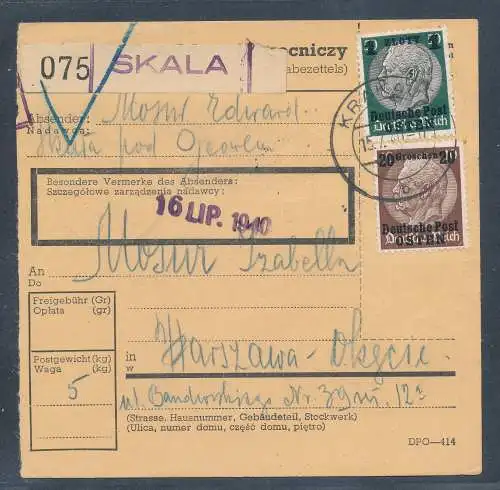 075 SKALA
ocniczy
abezettels)
1 ZŁOTY 1
Deutsche Post
OSTEN
Deutsches Reich
KRAKAU
Absender: Mosur Edward
Nadawca:
Skała pod Ojcowem
20 Groschen 20
Deutsche Post
OSTEN
Deutsches Reich
Besondere Vermerke des Absenders:
Szczegółowe zarządzenia nadawcy:
16 LIP. 1940
An Mosur Izabella
Do
Freigebühr (Gr)
Opłata (gr)
Postgewicht (kg)
Waga (kg)
5
in Warszawa - Okęcie
w
ul. Bandurskiego Nr. 39
(Strasse, Hausnummer, Gebäudeteil, Stockwerk)
(Ulica, numer domu, część domu, piętro)
DPO-414